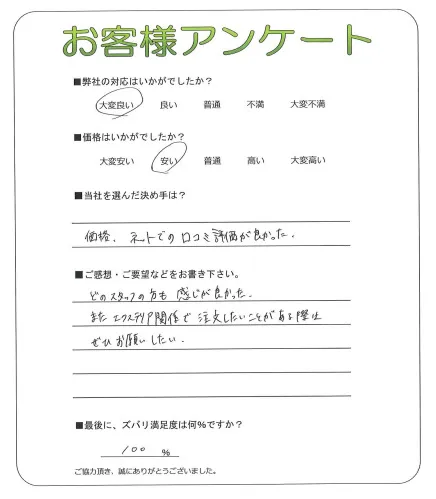 お客様アンケート
■弊社の対応はいかがでしたか？
大変良い 良い 普通 不満 大変不満
■価格はいかがでしたか？
大変安い 安い 普通 高い 大変高い
■当社を選んだ決め手は？
価格、ネットでの口コミ評価が良かった。
■ご感想・ご要望などをお書き下さい。
どのスタッフの方も感じが良かった。
また エクステリア関係で注文したいことがある際は
ぜひお願いしたい。
■最後に、ズバリ満足度は何%ですか？
100 %
ご協力頂き、誠にありがとうございました。